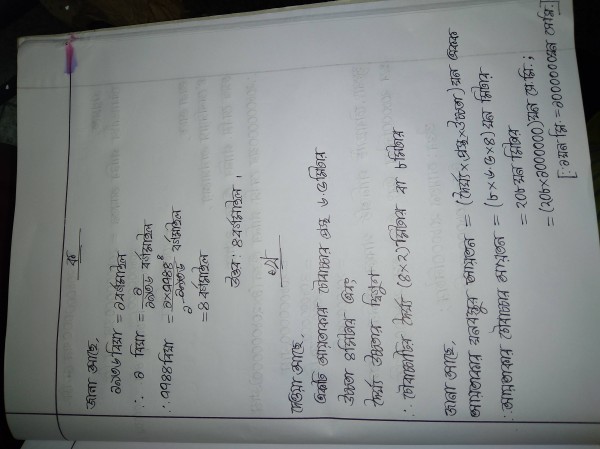 ক
জানা আছে,
১৯৩৬ বিঘা = ১ বর্গমাইল
∴ ১ বিঘা = ১/১৯৩৬ বর্গমাইল
∴ ৭৭৪৪ বিঘা = ১×৭৭৪৪/১৯৩৬ বর্গমাইল
= ৪ বর্গমাইল
উত্তর: ৪ বর্গমাইল।
খ
দেওয়া আছে,
একটি আয়তাকার চৌবাচ্চার প্রস্থ ৬.৫ মিটার
উচ্চতা ৪ মিটার এবং
দৈর্ঘ্য উচ্চতার দ্বিগুণ
∴ চৌবাচ্চাটির দৈর্ঘ্য (৪×২) মিটার বা ৮ মিটার
জানা আছে,
আয়তাকার ঘনবস্তুর আয়তন = (দৈর্ঘ্য×প্রস্থ×উচ্চতা) ঘন একক
∴ আয়তাকার চৌবাচ্চার আয়তন = (৮×৬.৫×৪) ঘন মিটার
= ২০৮ ঘন মিটার
= (২০৮×১০০০০০০) ঘন সে.মি.;
[∵ ১ঘন মি. = ১০০০০০০ ঘন সেমি.]